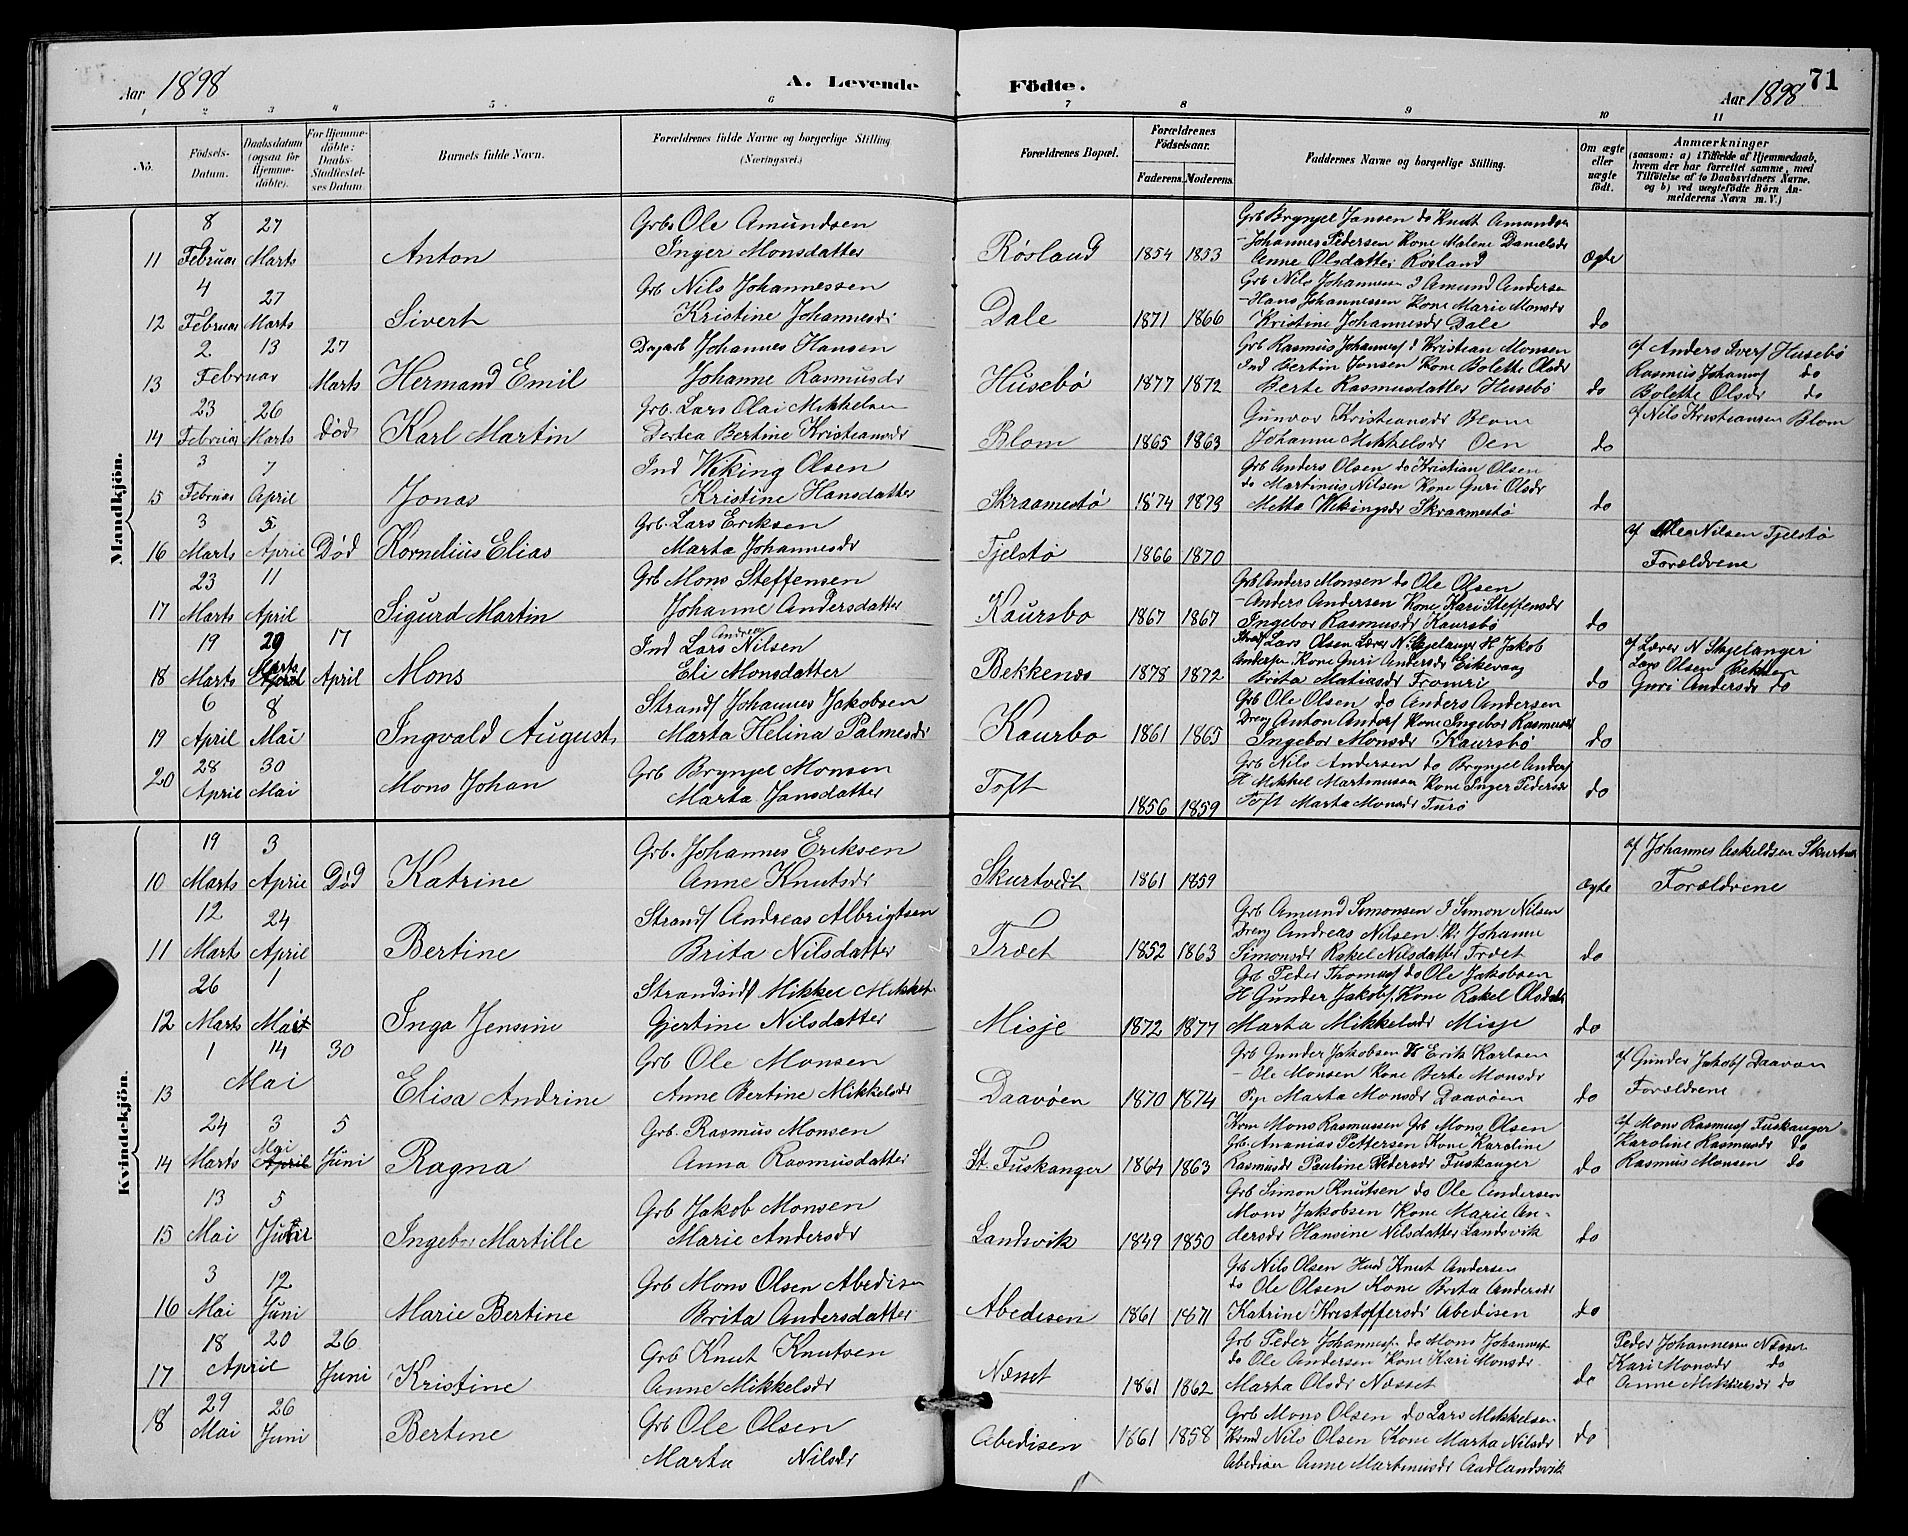 Aar 1898
A. Levende
Födte.
Aar 1898
71
1 2 3 4 5 6 7 8 9 10 11
No.
Födsels-Datum.
Daabsdatum (ogsaa for Hjemme-döbte).
For Hjemme-döbte: Daabs-Stadfæstel-ses Datum.
Barnets fulde Navn.
Forældrenes fulde Navne og borgerlige Stilling (Næringsvei.)
Forældrenes Bopæl.
Forældrenes Födselsaar.
Faderens. Moderens.
Faddernes Navne og borgerlige Stilling.
Om ægte eller uægte födt.
Anmærkninger
(saasom: a) i Tilfælde af Hjemmedaab, hvem der har forrettet samme, med Tilföielse af to Daabsvidners Navne. og b) ved uægtefödte Börn An-melderens Navn m. V.)
Mandkjön.
8 27 Grbr Ole Amundsen Grb Brynjel Jansen do Knut Amundsen
Inger Monsdatter - Johannes Pedersen Kone Malene Danielsdr
11 Februar Marts Anton Røsland 1854 1853 Anne Olsdatter Røsland Ægte
4 27 Grb Nils Johannessen Grb Nils Johannesen J Amund Andersen
- Hans Johannessen Kone Marie Monsdr
12 Februar Marts Sivert Kristine Johannesdr Dale 1871 1866 Kristine Johannesdr Dale do
2 13 27 Dagarb Johannes Hansen Grb Rasmus Johannesf J Kristian Monsen af Anders Iversf Husebø
Februar Ind Bertin Jonsen Kone Bolette Olsdr Rasmus Johannesf do
13 Marts Hermand Emil Johanne Rasmusdr Husebø 1877 1872 Berte Rasmusdatter Husebø do Bolette Olsdr do
23 26 Grb. Lars Olai Mikkelsen Gunvor Kristiansdr Blom af Nils Kristiansen Blom
14 Februar Marts Død Karl Martin Dortea Bertine Kristiansdr Blom 1865 1863 Johanne Mikkelsdr Oen do
3 7 Ind Weking Olsen Grb Anders Olsen do Kristian Olsen
do Martinus Nilsen Kone Guri Olsdr
15 Februar April Jonas Kristine Hansdatter Skraamestø 1874 1873 Metta Wekingsdr Skraamestø do
3 5 Grb. Lars Eriksen af Nilsen Tjelstø
16 Marts April Død Kornelius Elias Marta Johannesdr Tjelstø 1866 1870 Forældrene
23 11 Grb Mons Steffensen Grb Anders Monsen do Ole Olsen
- Anders Andersen Kone Kari Steffensdr
17 Marts April Sigurd Martin Johanne Andersdatter Kaursbo 1867 1867 Ingebor Rasmusdr Kaursbø do
19 20 17 Ind Lars Andreas Nilsen Lars Olsen Lærer N Skjelanger H Jakob af Lærer N Skjelanger
Marts Andersen Kone Guri Andersdr Eikevaag Lars Olsen
18 Marts April April Mons Eli Monsdatter Bekkenes 1878 1872 Brita Matiasdr do Guri Andersdr do
6 8 Strandf Johannes Jakobsen Grb Ole Olsen do Anders Andersen
Dreng Anton Andersf Kone Ingebor Rasmusdr
19 April Mai Ingvald August Marta Helina Palmesdr Kaurbo 1861 1865 Ingebor Monsdr Kaursbø do
28 30 Grb Brynjel Monsen Grb Nils Andersen do Brynjel Andersf
20 April Mai Mons Johan Marta Jansdatter Toft H Mikkel Martinussen Kone Inger Pedersdr do
1856 1859 Toft Marta Monsdr Turø
Kvindekjön.
19 3 Grb. Johannes Eriksen af Johannes Askeldsen
10 Marts April Død Katrine Anne Knutsdr Skurtvedt 1861 1859 Ægte Forældrene
12 24 Strandf Andreas Albrigtsen Grb Amund Simonsen J Simon Nilsen
Dreng Andreas Nilsen Johanne
11 Marts April Bertine Brita Nilsdatter Træet 1852 1863 Simonsdr Rakel Nilsdatter Træet do
26 1 Strandsidf Mikkel Grb Peder Thomasf do Ole Jakobsen
H Gunder Jakobsf. Kone Rakel Olsdatter
12 Marts Mai Inga Jensine Gjertine Nilsdatter Misje 1872 1877 Marta Mikkelsdr Misje do
1 14 30 Grb Ole Monsen Grb Gunder Jakobsen H Erik Karlsen af Gunder Jakobsf Daavøen
Mai - Ole Monsen Kone Berte Monsdr Forældrene
13 Elisa Andrine Anne Bertine Mikkelsdr Daavøen 1870 1874 Pige Marta Monsdr Daavøen do
24 3 5 Grb. Rasmus Monsen Mons Rasmussen Grb Mons Olsen af Mons Rasmusf Fuskanger
Mai Grb. Ananias Pettersen Kone Karoline Karoline Rasmusdr do
14 Marts April Juni Ragna Anna Rasmusdatter St. Fuskanger 1864 1863 Rasmusdr Pauline Pedersdr Fuskanger do Rasmus Monsen do
13 5 Grb Jakob Monsen Grb Simon Knutsen do Ole Andersen
Mons Jakobsen Kone Marie An-
15 Mai Juni Ingebor Martille Marie Andersdr Landsvik 1849 1850 dersdr Hansine Nilsdatter Landsvik do
3 12 Grb Mons Olsen Abedisen Grb Nils Olsen Knut Andersen
do Ole Olsen Kone Brita Andersdr
16 Mai Juni Marie Bertine Brita Andersdatter Abedisen 1861 1871 Katrine Kristoffersdr Abedisen do
18 20 26 Grb Knut Knutsen Grb Peder Johannesf do Mons Johannesf Peder Johannesen Næsset
April do Ole Andersen Kone Kari Monsdr Kari Monsdr do
17 Juni Kristine Anne Mikkelsdr Næsset 1861 1862 Marta Olsdr Næsset do Anne Mikkelsdr do
29 26 Grb Ole Olsen Grb Mons Olsen do Lars Mikkelsen
18 Mai Juni Bertine Abedisen 1861 1858 Nils Olsen Kone Marta Nilsdr do
Marta Nilsdr Abedisen Anne Martinusdr Aadlandsvik